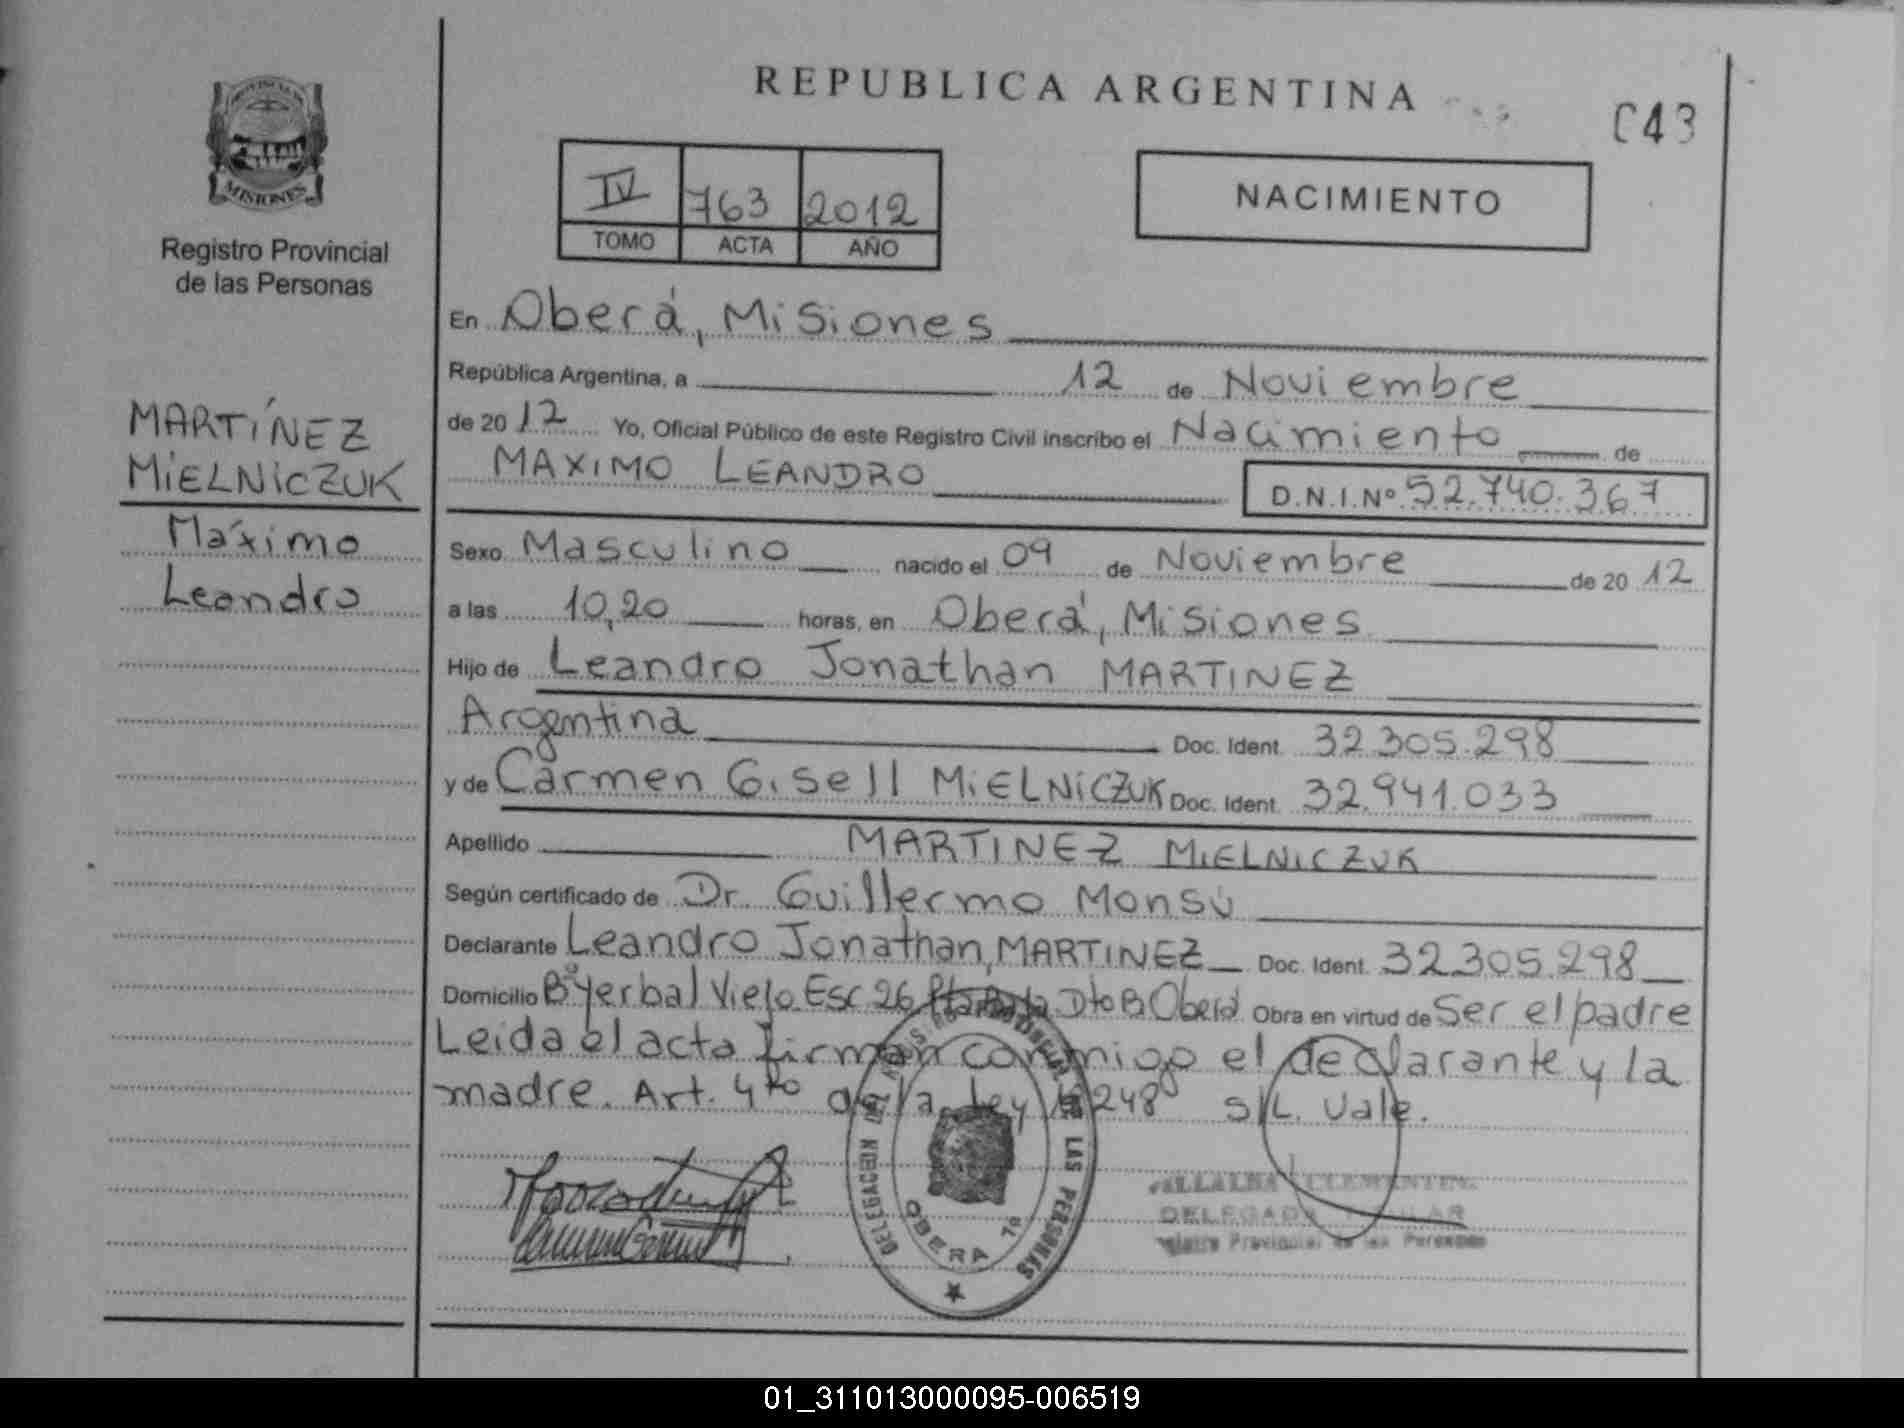 REPUBLICA ARGENTINA
C43
PROVINCIA DE
MISIONES
Registro Provincial
de las Personas
IV 763 2012
TOMO ACTA AÑO
NACIMIENTO
MARTÍNEZ
MIELNICZUK
Máximo
Leandro
En Oberá, Misiones
República Argentina, a 12 de Noviembre
de 2012 Yo, Oficial Público de este Registro Civil inscribo el Nacimiento de
MAXIMO LEANDRO D.N.I.Nº 52.740.367
Sexo Masculino nacido el 09 de Noviembre de 2012
a las 10,20 horas, en Oberá, Misiones
Hijo de Leandro Jonathan MARTINEZ
Argentina Doc. Ident. 32.305.298
y de Carmen Gisell MIELNICZUK Doc. Ident. 32.941.033
Apellido MARTINEZ MIELNICZUK
Según certificado de Dr. Guillermo Monsú
Declarante Leandro Jonathan, MARTINEZ Doc. Ident. 32.305.298
Domicilio Bº Yerbal Viejo Esc 26 Dto B Oberá Obra en virtud de Ser el padre
Leida el acta firman conmigo el declarante y la
madre. Art. 4to de la Ley 18248 S/L. Vale.
DELEGACION REGISTRO PROVINCIAL DE LAS PERSONAS
OBERA 1ª
VILLALBA CLEMENTINA
DELEGADA TITULAR
Registro Provincial de las Personas
01_311013000095-006519